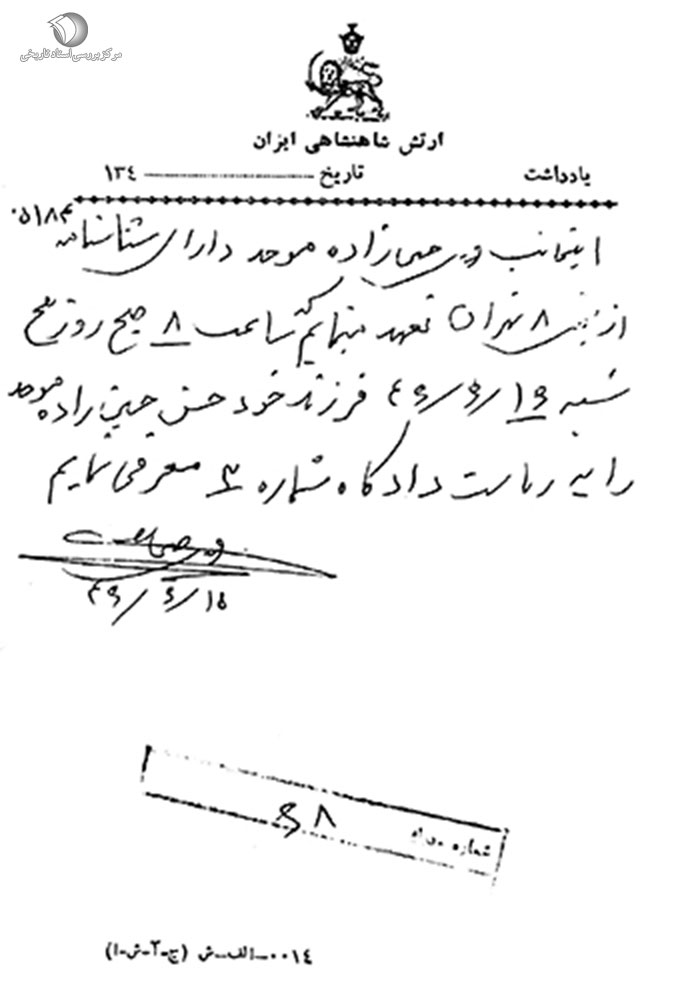 مرکز بررسی اسناد تاریخی
ارتش شاهنشاهی ایران
یادداشت تاریخ ۱۳٤
اینجانب حسن‌زاده موحد دارای شناسنامه
از بخش ۸ تهران تعهد مینمایم که ساعت ۸ صبح روز پنج
شنبه ۱۹/۶/۴۹ فرزند خود حسن حسن‌زاده موحد
را به ریاست دادگاه شماره ۳ معرفی نمایم
۴۹/۶/۱۵
شماره ۶۸
۰۰۱٤-الف-ش (ج-۲-ش-ا)